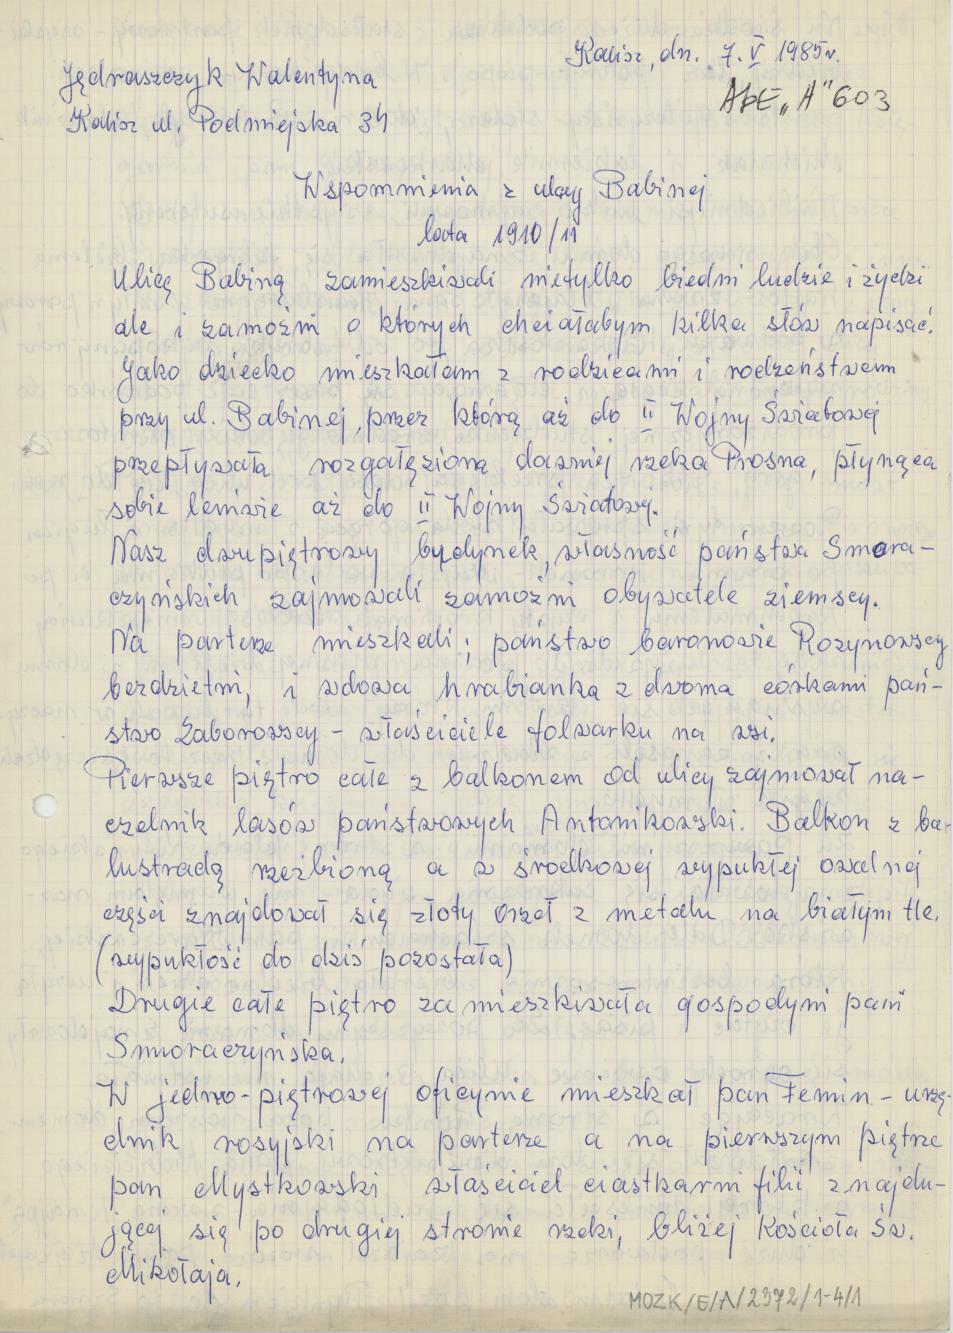 Kalisz, dn. 7.V 1985r.
Jędraszczyk Walentyna
AbE „A" 603
Kalisz ul. Podmiejska 34
Wspomnienia z ulicy Babinej
lata 1910/11
Ulicę Babiną zamieszkiwali nietylko biedni ludzie i żydzi
ale i zamożni o których chciałabym kilka słów napisać.
Jako dziecko mieszkałam z rodzicami i rodzeństwem
przy ul. Babinej, przez którą aż do II Wojny Światowej
przepływała rozgałęzioną dawniej rzeka Prosna, płynąca
sobie leniwie aż do II Wojny Światowej.
Nasz dwupiętrowy budynek, własność państwa Smora-
czyńskich zajmowali zamożni obywatele ziemscy.
Na parterze mieszkali; państwo baronowie Rozynowscy
bezdzietni, i wdowa hrabianka z dwoma córkami pań-
stwo Zaborowscy - właściciele folwarku na wsi.
Pierwsze piętro całe z balkonem od ulicy zajmował na-
czelnik lasów państwowych Antonikowski. Balkon z ba-
lustradą rzeźbioną a w środkowej wypukłej owalnej
części znajdował się złoty orzeł z metalu na białym tle.
(wypukłość do dziś pozostała)
Drugie całe piętro zamieszkiwała gospodyni pani
Smoraczyńska.
W jedno-piętrowej oficynie mieszkał pan Femin - urzę-
dnik rosyjski na parterze a na pierwszym piętrze
pan Mystkowski właściciel ciastkarni filii znajdu-
jącej się po drugiej stronie rzeki, bliżej Kościoła Św.
Mikołaja.
MOZK/E/A/2372/1-4/1